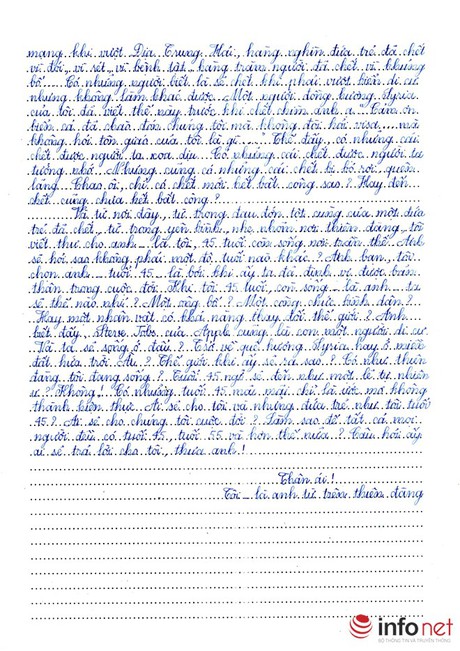 mạng khi vượt Địa Trung Hải, hàng nghìn đứa trẻ đã chết
vì đói, vì rét, vì bệnh tật, hàng trăm người đã chết vì khủng
bố... Có những người biết là sẽ chết khi phải vượt biển di cư
nhưng không làm khác được. Một người đồng hương Syria
của tôi đã viết thế này trước khi chết chìm anh ạ: "Cảm ơn
biển cả đã chào đón chúng tôi mà không đòi hỏi visa... mà
không hỏi tôn giáo của tôi là gì..." Thế đấy, có những cái
chết được người ta xoa dịu. Có những cái chết được người ta
tưởng nhớ. Nhưng cũng có những cái chết bị bỏ rơi, quên
lãng. Chao ôi, chỉ có chết mới hết bất công sao? Hay đến
chết cũng chưa hết bất công?
Và từ nơi đây, từ trong đau đớn tột cùng của một đứa
trẻ đã chết, từ trong yên bình, nhẹ nhõm nơi thiên đàng, tôi
viết thư cho anh - là tôi, 45 tuổi còn sống nơi trần thế. Anh
sẽ hỏi sao không phải một độ tuổi nào khác? Anh bạn, tôi
chọn anh - tuổi 45 - là bởi khi ấy ta đã định vị được bản
thân trong cuộc đời. Khi tôi 45 tuổi, còn sống - là anh - ta
sẽ thế nào nhỉ? Một ông bố? Một công chức bình dân?
Hay một nhân vật có khả năng thay đổi thế giới? Anh
biết đấy, Steve Jobs của Apple cũng là con một người di cư.
Và ta sẽ sống ở đâu? Trở về quê hương Syria hay ở miền
đất hứa trời Âu? Thế giới khi ấy sẽ ra sao? Có như thiên
đàng tôi đang sống? Tuổi 45 ngỡ sẽ đến như một lẽ tự nhiên
ư? Không! Có những tuổi 45 mãi mãi chỉ là ước mơ không
thành hiện thực. Ai sẽ cho tôi và những đứa trẻ như tôi tuổi
45? Ai sẽ cho chúng tôi cuộc đời? Làm sao để tất cả mọi
người đều có tuổi 45, tuổi 55 và hơn thế nữa? Câu hỏi ấy
ai sẽ trả lời cho tôi, thưa anh!
Thân ái!
Tôi - là anh từ trên thiên đàng
infonet
BỘ THÔNG TIN VÀ TRUYỀN THÔNG